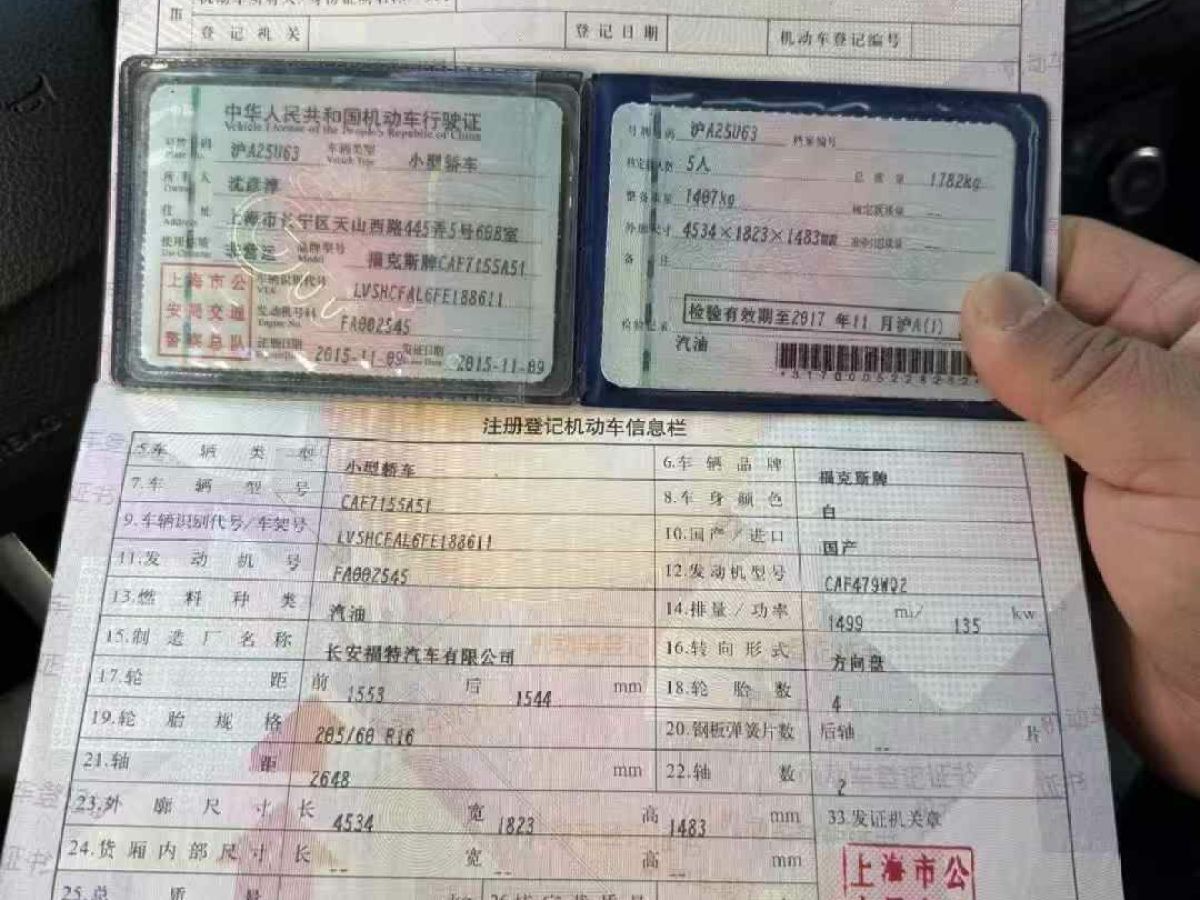 登记机关 登记日期 机动车登记编号
中华人民共和国机动车行驶证
Vehicle License of the People's Republic of China
号牌号码 沪A25U63 车辆类型 小型轿车
Plate No. Vehicle Type
所有人 沈彦淳
Owner
住址 上海市长宁区天山西路445弄5号608室
Address
使用性质 非营运 品牌型号 福克斯牌CAF7155A51
Use Character Model
上海市公
安局交通
警察总队
车辆识别代号 LVSHCFAL6FE188611
VIN
发动机号码 FA002545
Engine No.
注册日期 2015-11-09 发证日期 2015-11-09
号牌号码 沪A25U63 档案编号
核定载人数 5人 总质量 1782kg
整备质量 1407kg 核定载质量 --
外廓尺寸 4534×1823×1483mm 准牵引总质量 --
备注
检验记录 检验有效期至2017 年11 月沪A(1)
汽油
注册登记机动车信息栏
5.车辆类型 小型轿车 6.车辆品牌 福克斯牌
7.车辆型号 CAF7155A51 8.车身颜色 白
9.车辆识别代号/车架号 LVSHCFAL6FE188611 10.国产/进口 国产
11.发动机号 FA002545 12.发动机型号 CAF479WQ2
13.燃料种类 汽油 14.排量/功率 1499 ml/ 135 kw
15.制造厂名称 长安福特汽车有限公司 16.转向形式 方向盘
17.轮距 前 1553 后 1544 mm 18.轮胎数 4
19.轮胎规格 205/60 R16 20.钢板弹簧片数 后轴 -- 片
21.轴距 2648 mm 22.轴数 2
23.外廓尺寸 长 4534 宽 1823 高 1483 mm 33.发证机关章
24.货厢内部尺寸 长 -- 宽 -- 高 -- mm
上海市公
25.总质量